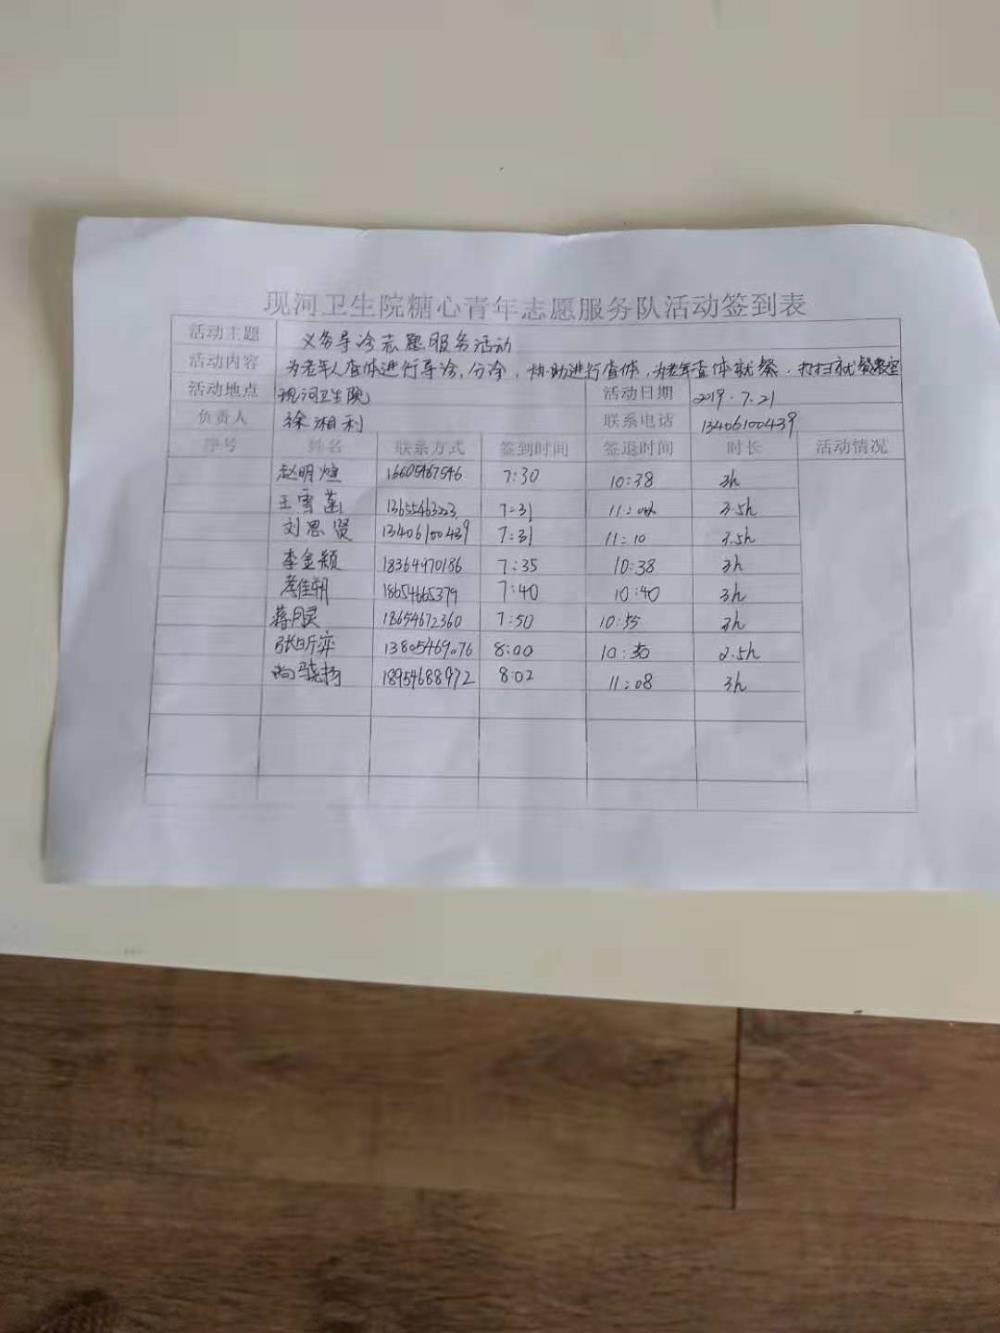 现河卫生院糖心青年志愿服务队活动签到表
活动主题 义务导诊志愿服务活动
活动内容 为老年人查体进行导诊,分诊,协助进行查体,为老年查体就餐,打扫就餐教室
活动地点 现河卫生院 活动日期 2019.7.21
负责人 徐湘利 联系电话 13406100439
序号 姓名 联系方式 签到时间 签退时间 时长 活动情况
赵明煊 16605467546 7:30 10:38 3h
王雪菡 13655463223 7:31 3.5h
刘思贤 13406100439 7:31 11:10 3.5h
李金颖 18364970186 7:35 10:38 3h
佳朝 18654665379 7:40 10:40 3h
蒋月灵 18654672360 7:50 10:55 3h
张昕弈 13805469076 8:00 10:30 2.5h
尚骁扬 18954688972 8:02 11:08 3h